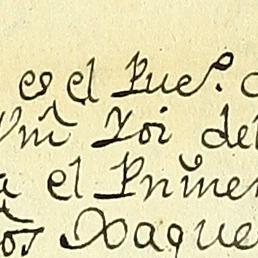 es el Pue.º
Vm.d Yoi del
a el Primer
tos Oxaque